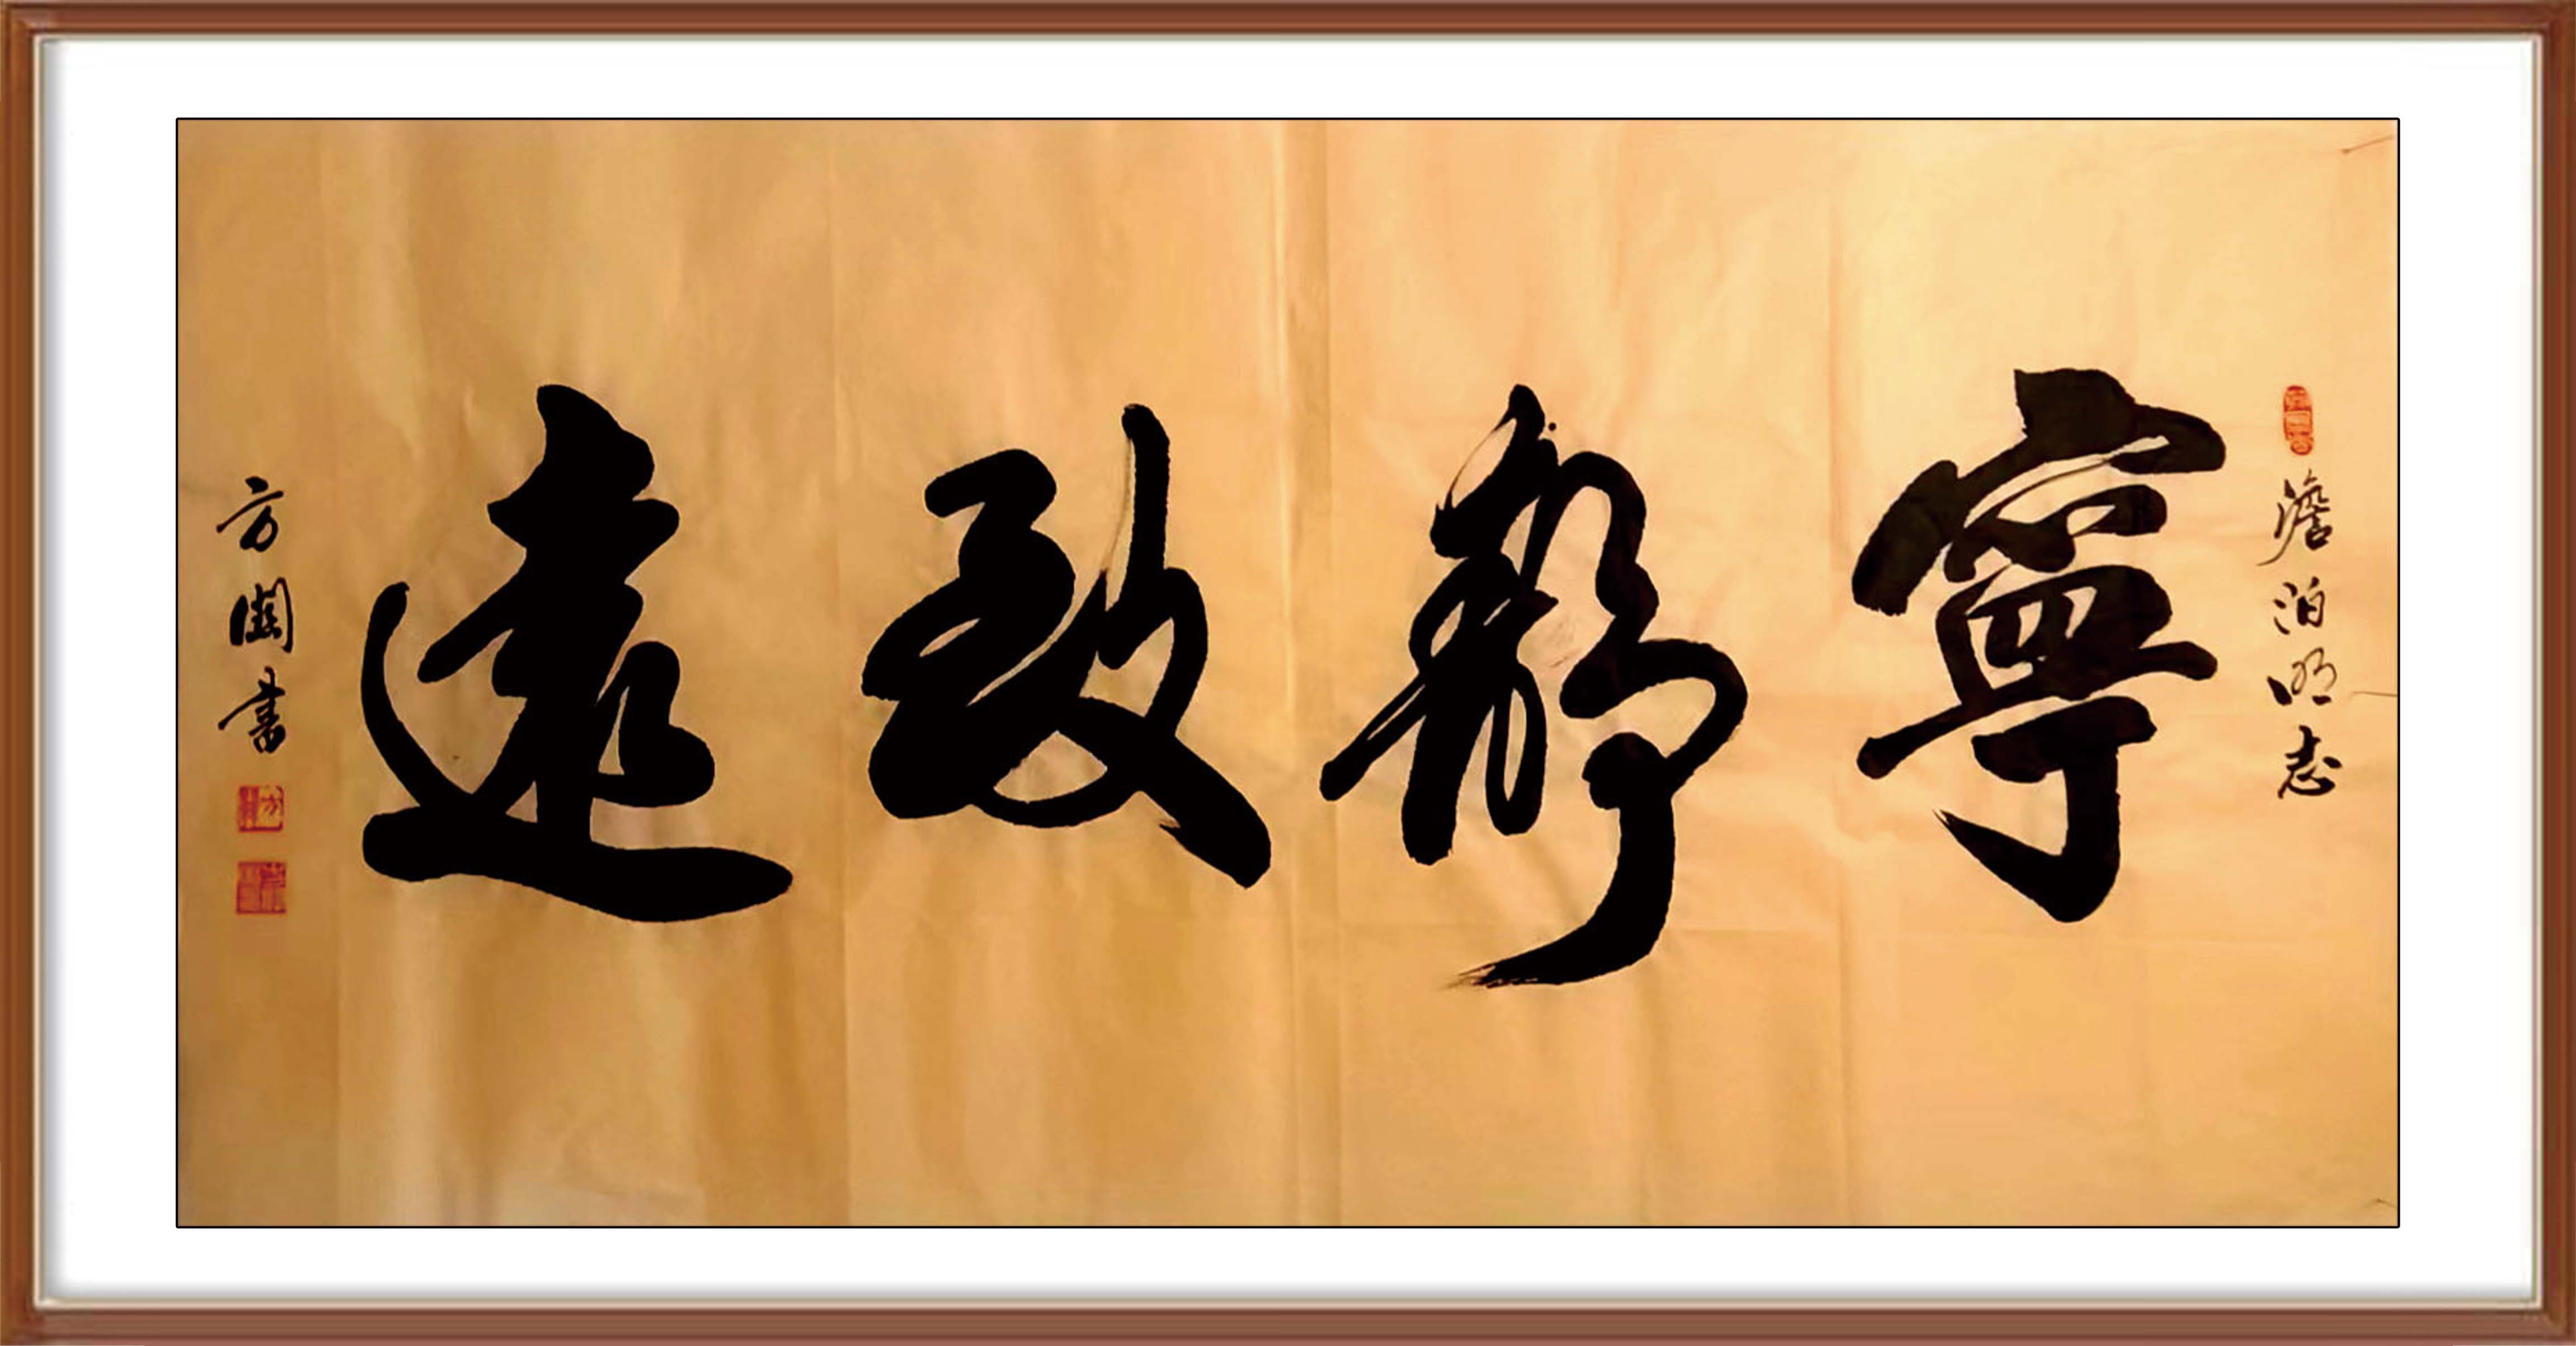 澹泊明志
寧靜致遠
方闗書